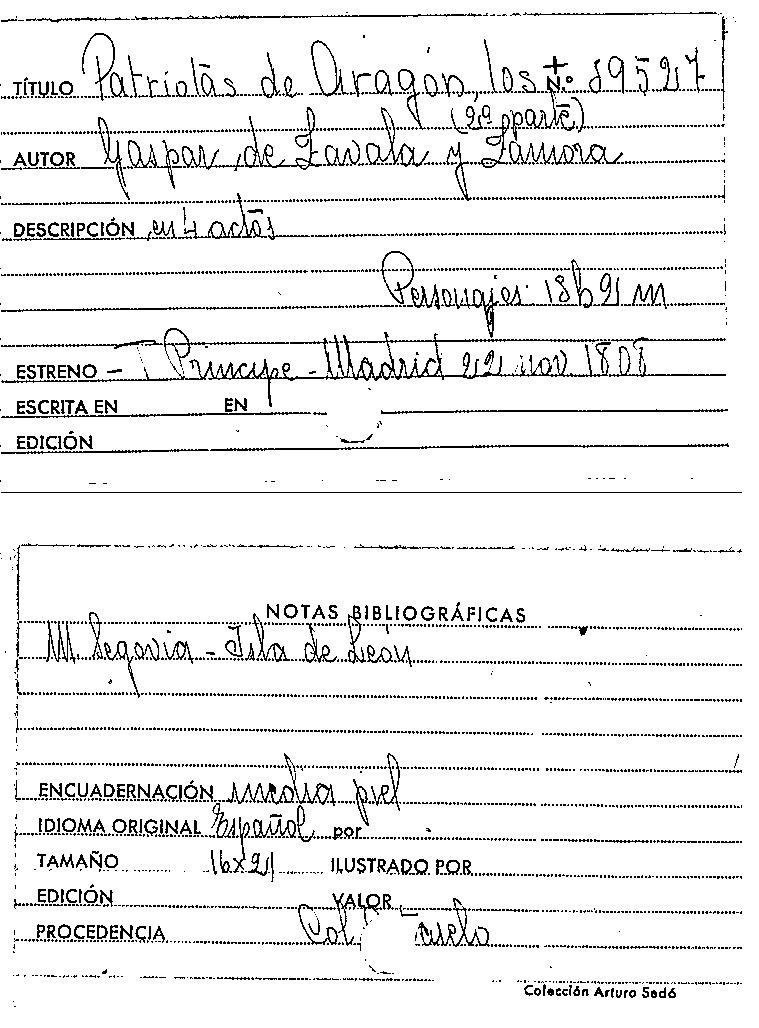 TÍTULO Patriotas de Aragón, los + N.º 89527
(2ª parte)
AUTOR Gaspar de Zavala y Zamora
DESCRIPCIÓN en 4 actos
Personajes: 18h 2 m
ESTRENO - T Principe - Madrid 22 nov 1808
ESCRITA EN EN
EDICIÓN
NOTAS BIBLIOGRÁFICAS
M. Segovia - Isla de León
ENCUADERNACIÓN media piel
IDIOMA ORIGINAL Español por
TAMAÑO 16x21 ILUSTRADO POR
EDICIÓN VALOR
PROCEDENCIA Col
Colección Arturo Sedó